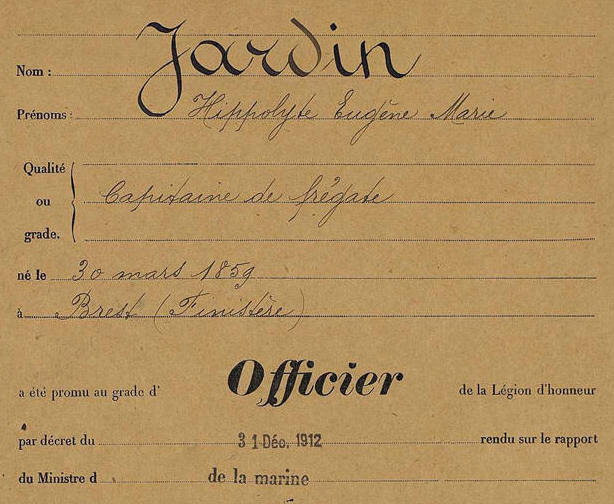 Nom : Jardin
Prénoms : Hippolyte Eugène Marie
Qualité
ou Capitaine de frégate
grade.
né le 30 mars 1859
à Brest (Finistère)
a été promu au grade d' Officier de la Légion d'honneur
par décret du 31 Déc. 1912 rendu sur le rapport
du Ministre d de la marine